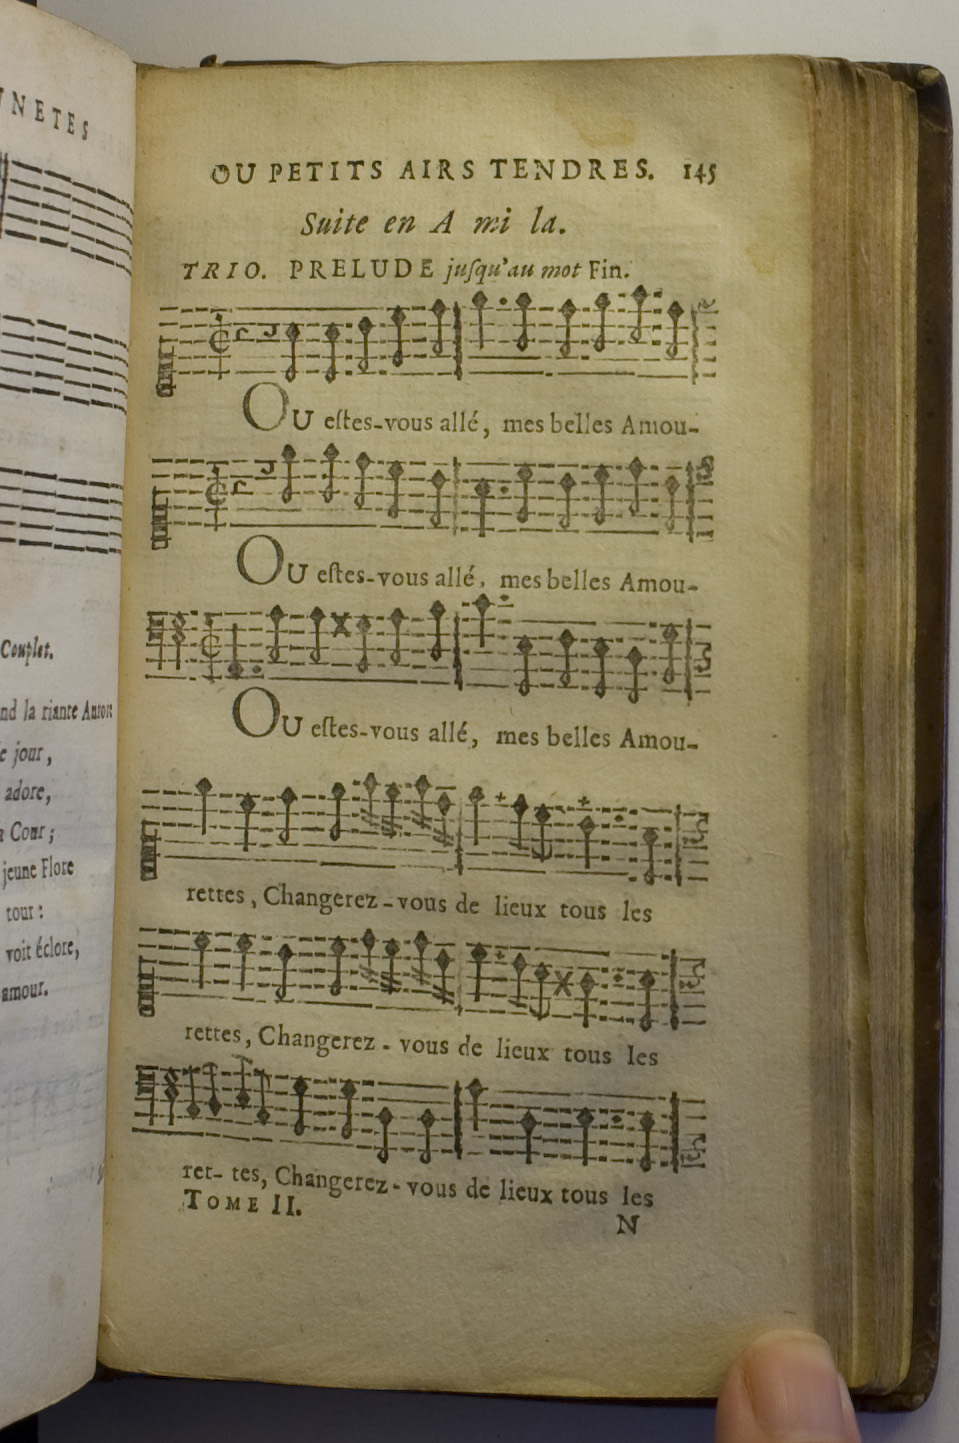 NNETES
Couplet.
nd la riante Aurore
e jour,
adore,
Cour;
jeune Flore
tour:
voit éclore,
amour.
OU PETITS AIRS TENDRES. 145
Suite en A mi la.
TRIO. PRELUDE juſqu'au mot Fin.
OU eſtes-vous allé, mes belles Amou-
OU eſtes-vous allé, mes belles Amou-
OU eſtes-vous allé, mes belles Amou-
rettes, Changerez-vous de lieux tous les
rettes, Changerez-vous de lieux tous les
ret-tes, Changerez-vous de lieux tous les
TOME II.
N